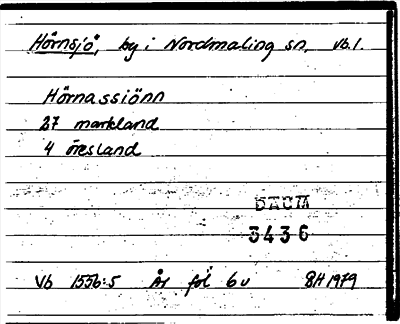 Hörnsjö, by i Nordmaling sn, Vb.l.
Hörnassiönn
27 markland
4 öresland
DACM
3436
Vb 1556:5 År fol 6v BH 1979